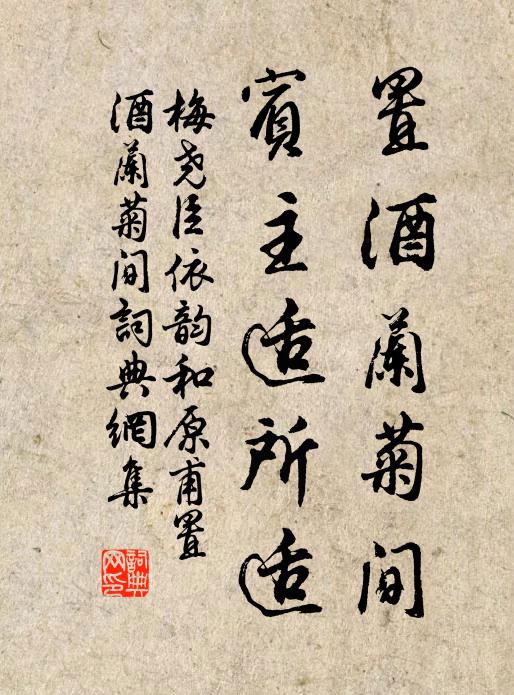 置酒蘭菊间
賓主适所适
梅尧臣依韵和原甫置
酒蘭菊间詞典網集
詞典网印